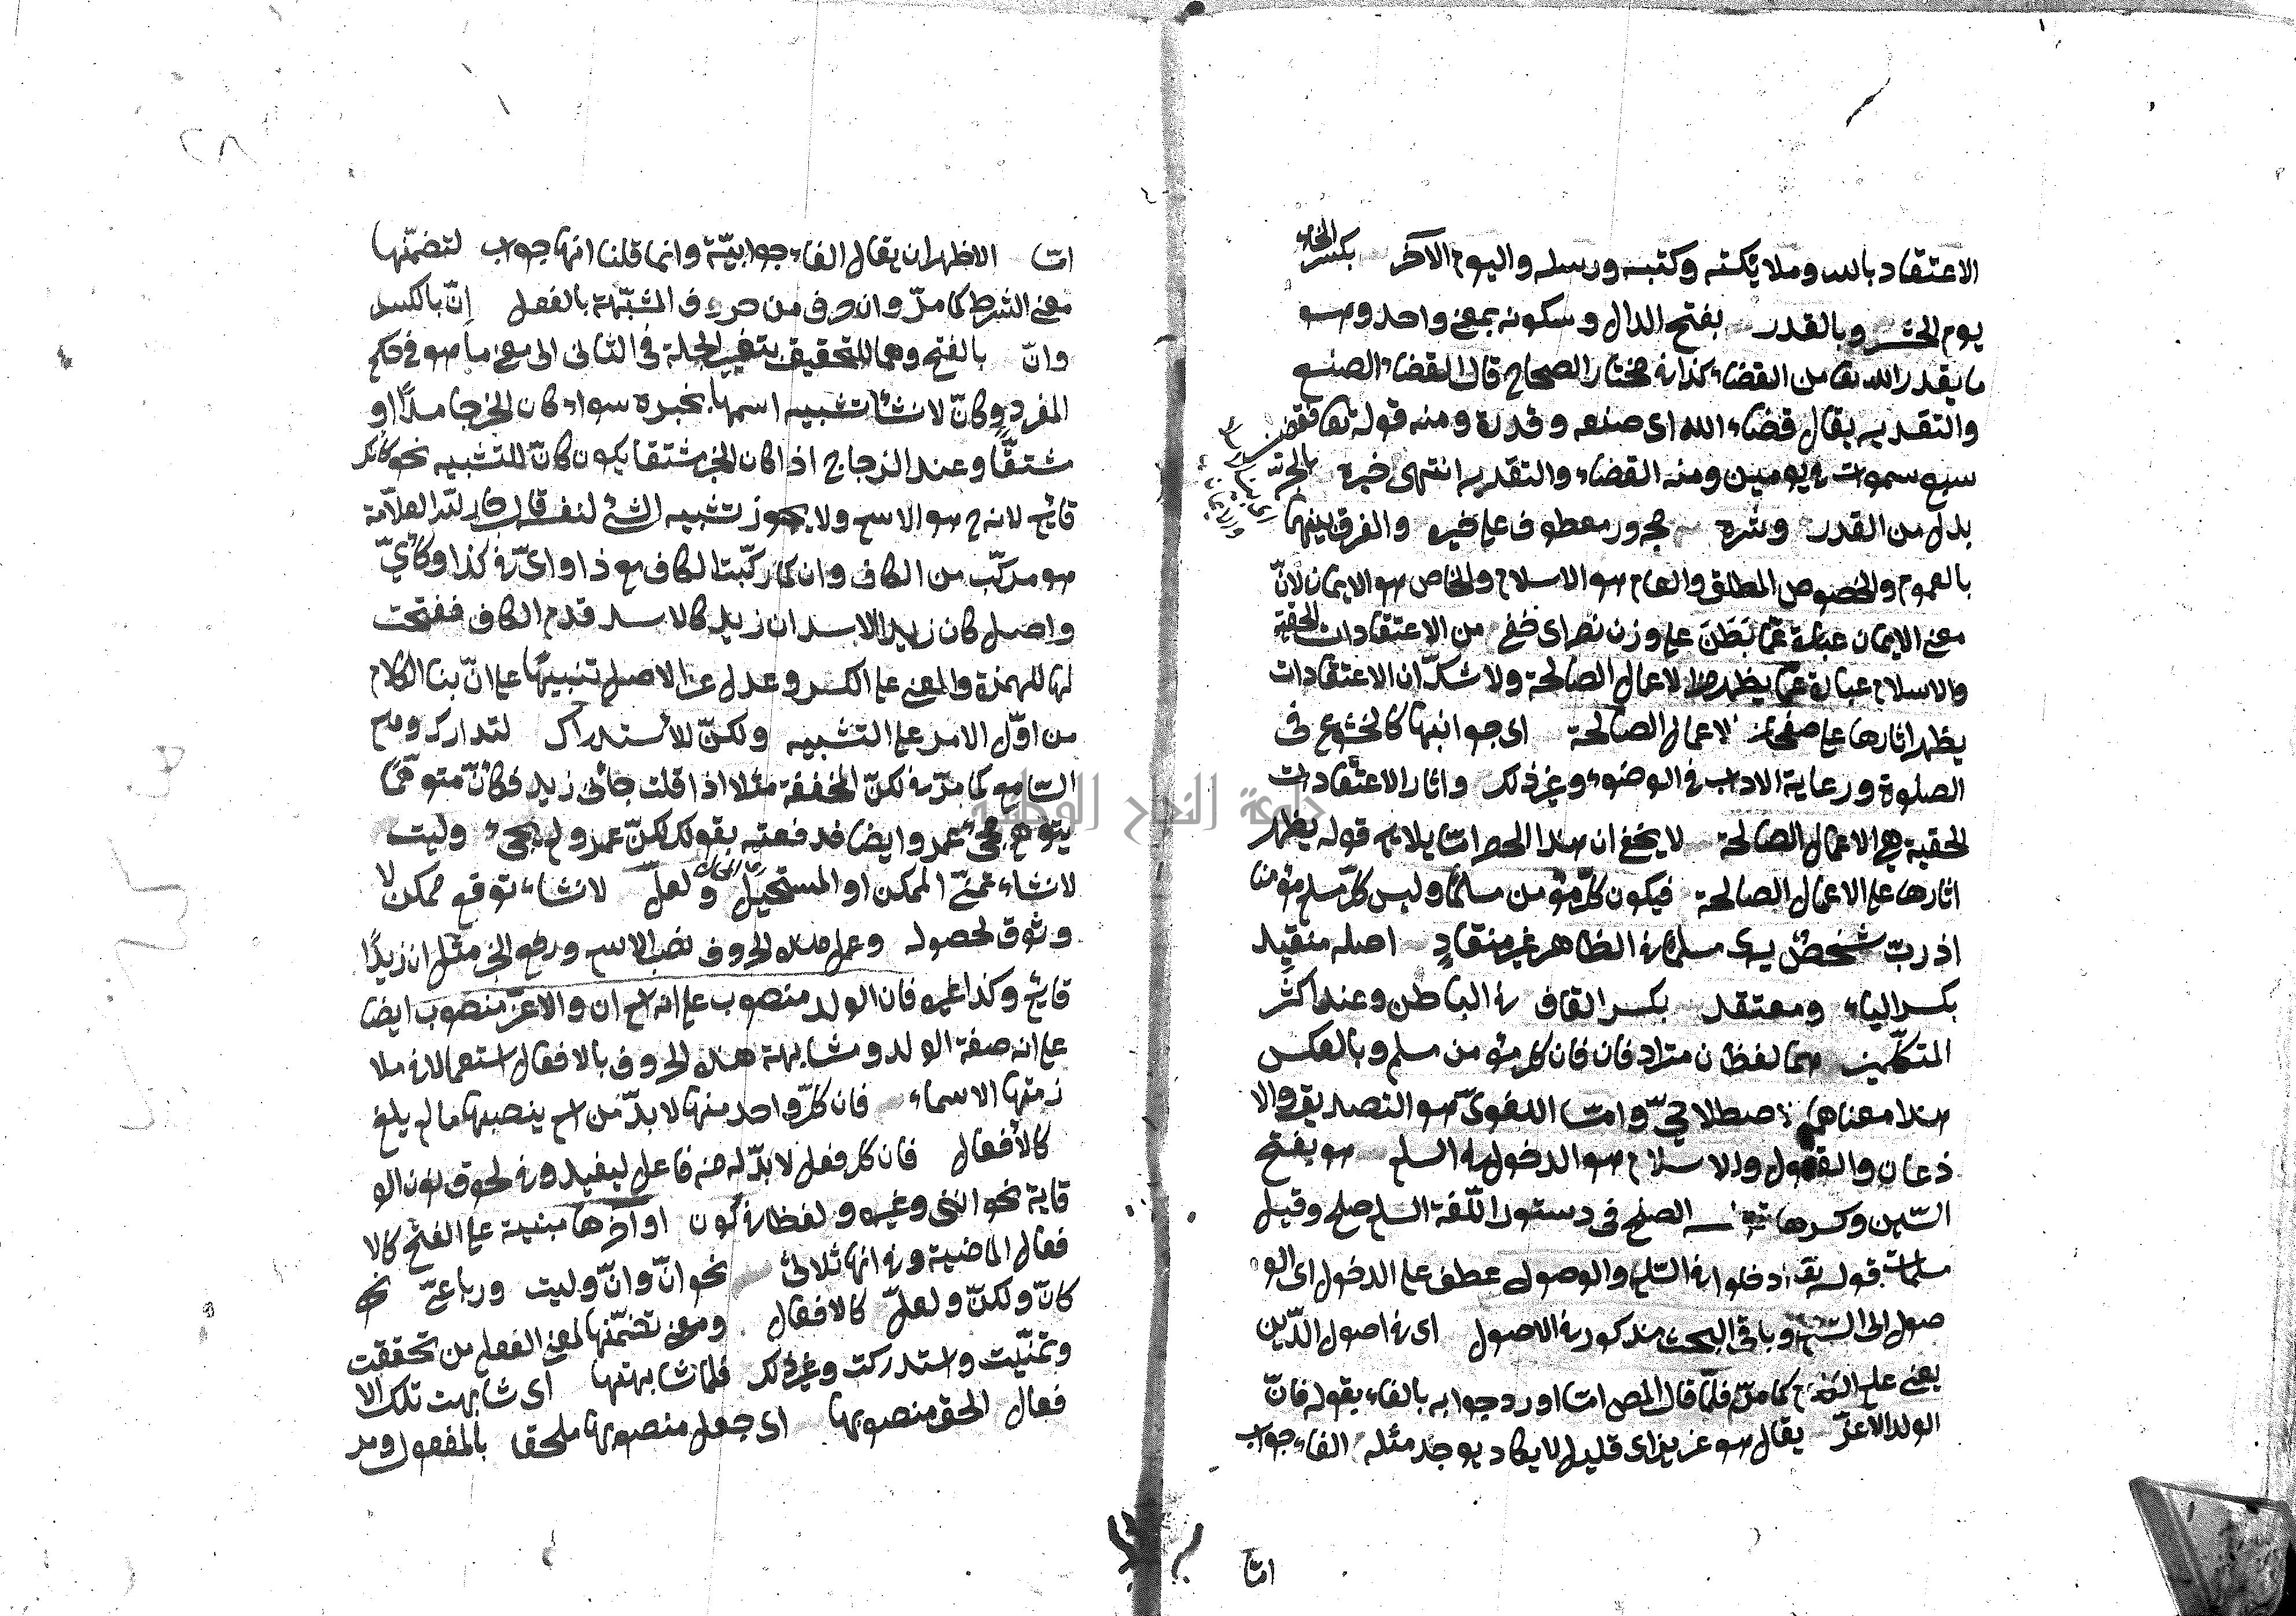 الاعتقاد بالله وملائكته وكتبه ورسله واليوم الآخر بكسر الخاء
يوم الحشر وبالقدر بفتح الدال وسكونه بمعنى واحد وهو
ما يقدر الله تعا من القضاء كذا في مختار الصحاح قال القضاء الصنع
والتقدير يقال قضاء الله اى صنعه وقدرة ومنه قوله تعا فقضهن
سبع سموات في يومين ومنه القضاء والتقدير انتهى خيره بالجر
بدل من القدر وشره مجرور معطوف على خيره والفرق بينهما
اى بين الاسلام
والايمان
بالعموم والخصوص المطلق والعام هو الاسلام والخاص هو الايمان لانّ
معنى الايمان عبارة عمّا بَطَنَ على وزن نصر اى خفى من الاعتقادات الحقية
والاسلام عبارة عمّا يظهر من الاعمال الصالحة ولا شكّ ان الاعتقادات
يظهر اثارها على صفحات الاعمال الصالحة اى جوانبها كالخشوع فى
الصلوة ورعاية الاداب في الوضوء وغير ذلك واثار الاعتقادات
الحقية هي الاعمال الصالحة لا يخفى ان هذا الحصر امّا يلايم قوله يظهر
اثارها على الاعمال الصالحة فيكون كلّ مؤمن مسلمًا وليس كلّ مسلم مؤمنا
اذ ربّ شخص يرى مسلما في الظاهر غير منقادٍ اصله منقيد
بكسر الياء ومعتقد بكسر القاف في الباطن وعند اكثر
المتكلّمين هما لفظان مترادفان فان كل مؤمن مسلم وبالعكس
هذا معناهما الاصطلاحىّ وامّا اللغوىّ هو التصديق والا
ذعان والقبول والاسلام هو الدخول في السلم هو بفتح
السّين وكسرها الصلح فى دستور اللّغة السلم صلح وقيل
قوله تعا ادخلوا في السّلم والوصول عطف على الدخول اى الو
صول الى السّلم وباقى البحث مذكور في الاصول اى في اصول الدّين
يعنى علم كما مرّ فلمّا قال المص امّا اورد جوابه بالفاء بقوله فانّ
الولد الاعزّ يقال هو عزيز اى قليل لا يكاد يوجد مثله الفاء جواب
امّا
امّا الاظهر ان يقال الفاء جوابيّة وانما قلنا انها جواب لتضمّنها
معنى الشرط كما مرّ وان حرف من حروف المشبّهة بالفعل إنّ بالكسر
وانّ بالفتح وهما للتحقيق بتغيير الجملة فى الثانى الى معنى ما هو فى حكم
المفرد وكانّ لانشاء تشبيه اسمها بخبره سواء كان الخبر جامدًا او
مشتقًّا وعند الزجاج اذا كان الخبر مشتقا يكون كانّ للتشبيه نحو كانك
قائم لانه ح هو الاسم ولا يجوز تشبيه الشئ لنفسه قال جار الله العلّامة
هو مركّب من الكاف وان كما ركّبت الكاف مع ذا واىّ في كذا وكأيّ
واصل كان زيدا الاسد ان زيدا كالاسد قدم الكاف ففتحت
لها الهمزة والمعنى على الكسر وعدل عن الاصل تنبيهًا على انّ بنا الكلام
من اوّل الامر على التشبيه ولكنّ للاستدراك لتدارك وهم
السّامع كما مرّ في لكنّ المخففة مثلا اذا قلت جائنى زيد فكانّ متوهّمًا
يتوهم مجئ عمرو ايضا فدفعته بقولك لكنّ عمرو لم يجئ وليت
لانشاء تمنّى الممكن او المستحيل ولعلّ لانشاء توقع ممكن لا
وثوق لحصوله وعمل هذه الحروف نصب الاسم ورفع الخبر مثل ان زيدًا
قائم وكذا غيره فان الولد منصوب على انه اسم ان والاعزّ منصوب ايضا
على انه صفة الولد ومشابهة هذه الحروف بالافعال استعمالا في ملا
زمتها الاسماء فان كلّ واحد منها لا بدّ من اسم ينصبها ما لم يلغ
كالافعال فان كل فعل لا بدّ له منه فاعل ليفيد وفى لحوق نون الو
قاية نحو اننى وغيره ولفظا في كون اواخرها مبنية على الفتح كالا
فعال الماضية وفي انها ثلاثى نحو انّ وانّ وليت ورباعىّ نحو
كانّ ولكنّ ولعلّ كالافعال ومعنى تضمّنها لمعنى الفعل من تحققت
وتمنّيت واستدركت وغير ذلك فلما شابهتها اى شابهت تلك الا
فعال الحق منصوبها اى جعل منصوبها ملحقا بالمفعول ومر
جامعة النجاح الوطنية